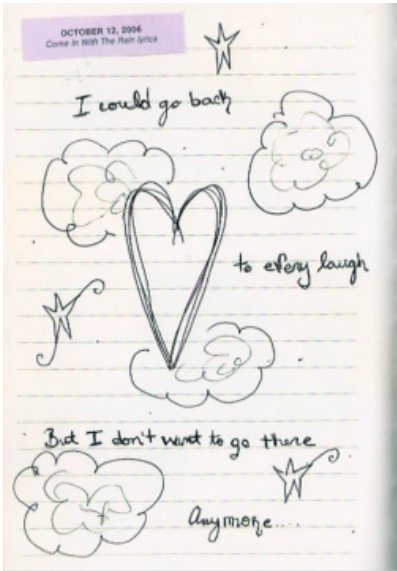 OCTOBER 12, 2006
Come In With The Rain lyrics
I could go back
to every laugh
But I don't want to go there
Anymore....